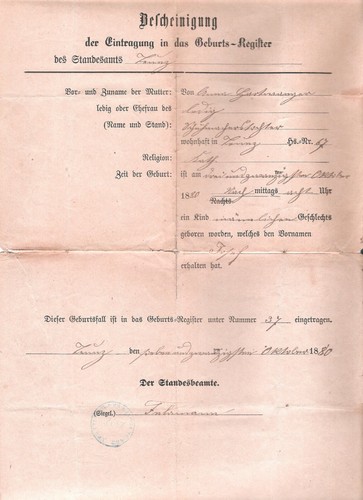 Bescheinigung
der Eintragung in das Geburts-Register
des Standesamts Teunz
Vor- und Zuname der Mutter: Von Anna
ledig oder Ehefrau des ledig
(Name und Stand):
wohnhaft in Teunz Hs.-Nr. 67
Religion: kath.
Zeit der Geburt: ist am dreiundzwanzigsten Oktober
1880 Nach mittags acht Uhr
Nachts
ein Kind männlichen Geschlechts
geboren worden, welches den Vornamen
Josef
erhalten hat.
Dieser Geburtsfall ist in das Geburts-Register unter Nummer 37 eingetragen.
Teunz den siebenundzwanzigsten Oktober 1880
Der Standesbeamte.
(Siegel.)